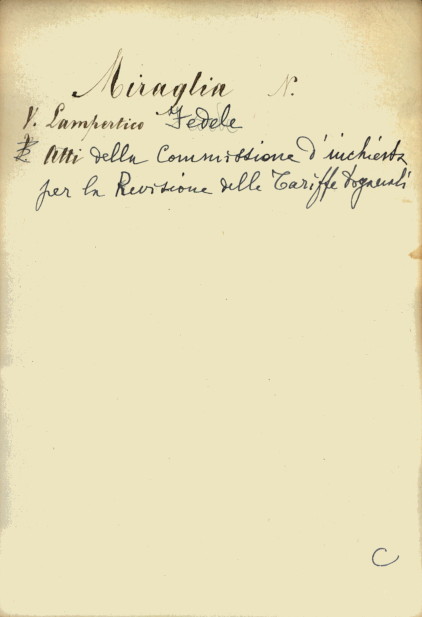 Miraglia N.
V. Lampertico Fedele
Atti della Commissione d'inchiesta
per la Revisione delle Tariffe doganali
C